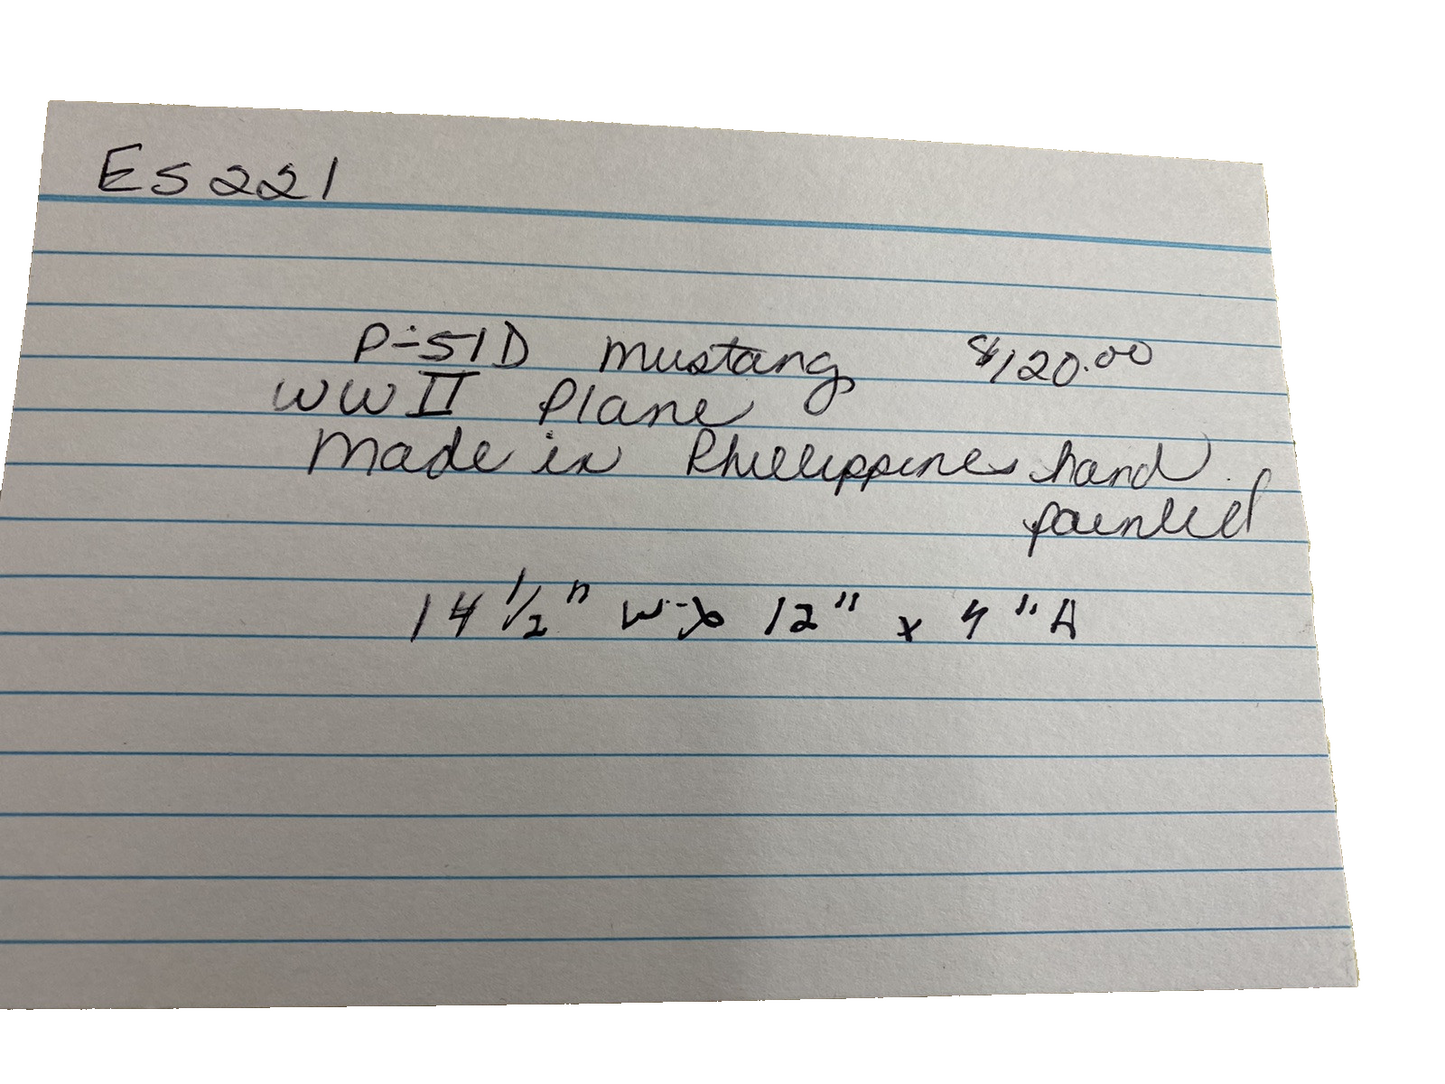 ES221
P-51D Mustang $120.00
WW II Plane
Made in Phillippines hand
painted
14 1/2" W x 12" x 4" H